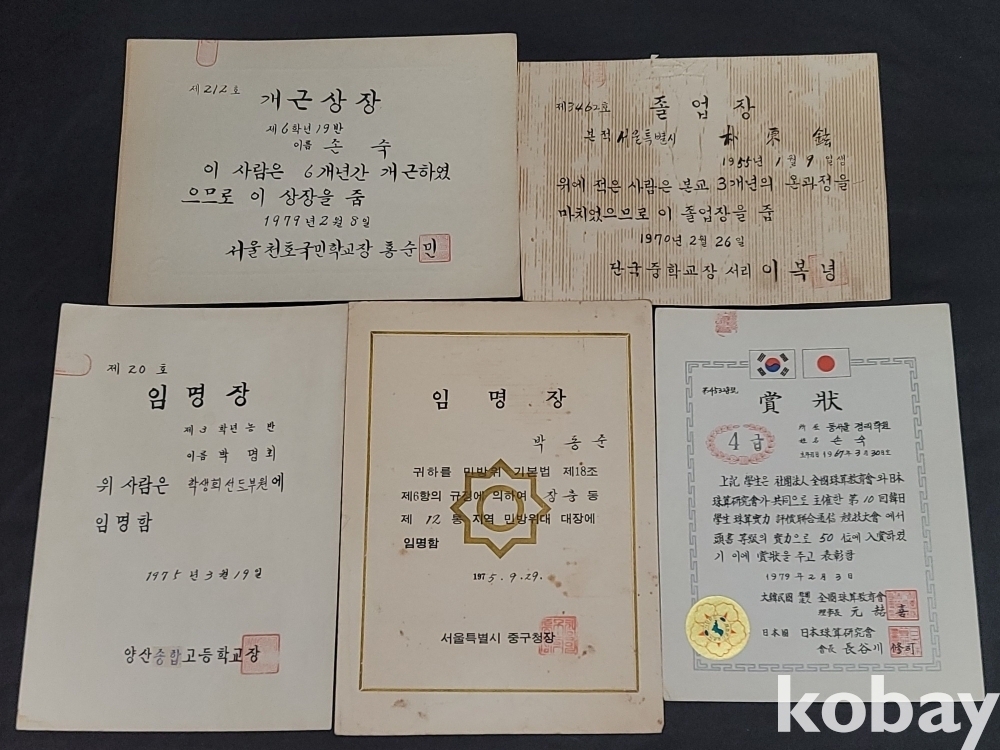 제212호
개근상장
제6학년19반
이름 손 숙
이 사람은 6개년간 개근하였
으므로 이 상장을 줌
1979년2월8일
서울천호국민학교장 홍순민
제3462호
졸업장
본적 서울특별시 朴東鉉
1955년 1월 9일생
위에 적은 사람은 본교 3개년의 온과정을
마치었으므로 이 졸업장을 줌
1970년 2월 26일
단국중학교장 서리 이복녕
제 20 호
임명장
제3학년농반
이름 박명회
위 사람은 학생회선도부원에
임명함
1975년3월19일
양산종합고등학교장
임 명 장
박동준
귀하를 민방위 기본법 제18조
제6항의 규정에 의하여 장충동
제 12 통 지역 민방위대 대장에
임명함
1975.9.29.
서울특별시 중구청장
賞狀
4급
姓名 손 숙
生年月日 1967年3月30日生
上記 學生은 社團法人 全國珠算敎育會와 日本
珠算硏究會가 共同으로 主催한 第10回韓日
學生 珠算實力 評價聯合通信 競技大會에서
頭書 等級의 實力으로 50位에 入賞하였
기 이에 賞狀을 주고 表彰함
1979年2月3日
大韓民國 社團法人 全國珠算敎育會
理事長 元喆喜
日本國 日本珠算硏究會
會長 長谷川修司
kobay